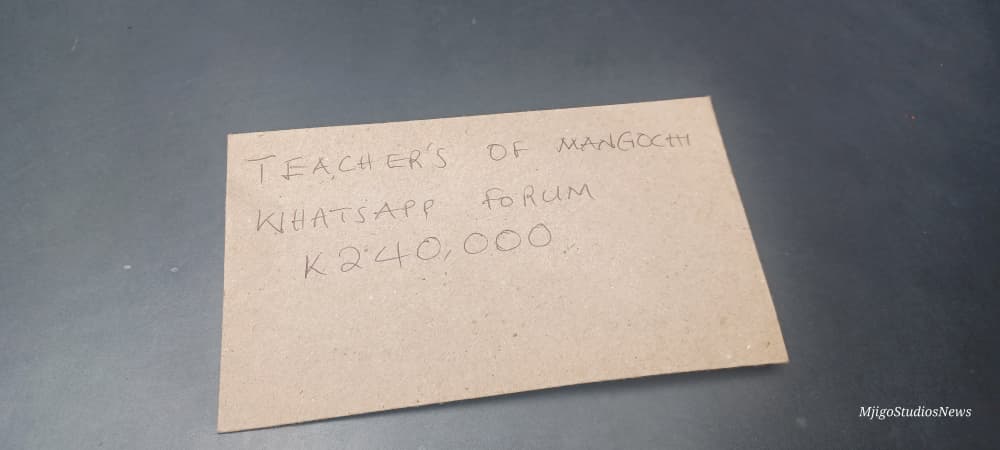 TEACHER'S OF MANGOCHI
WHATSAPP FORUM
K240,000
MjigoStudiosNews